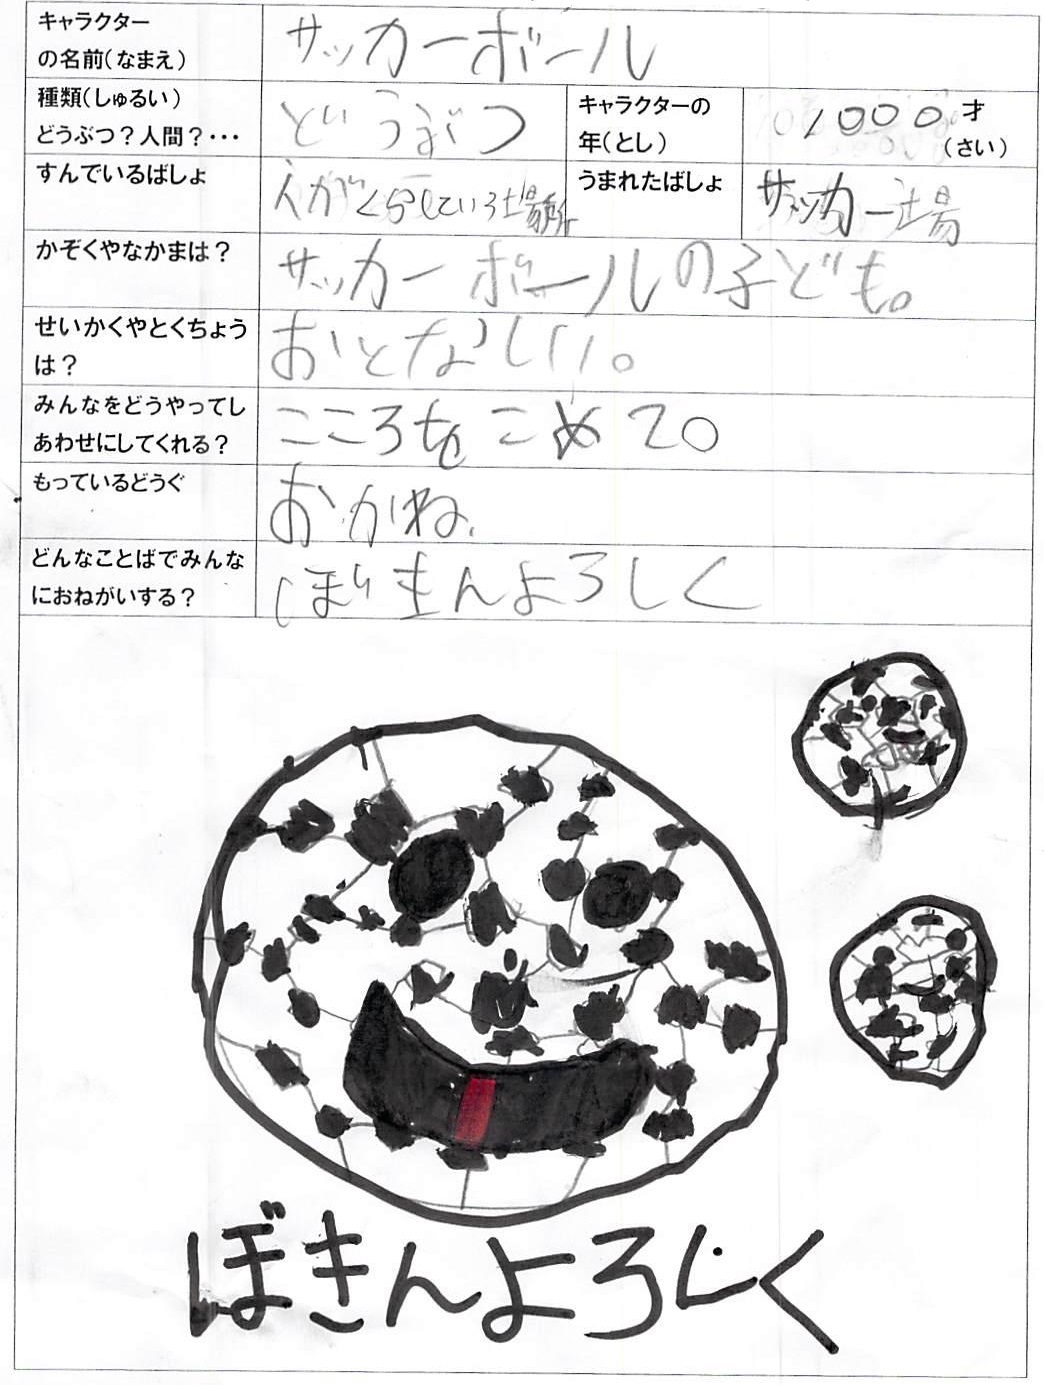 キャラクター
の名前(なまえ)
サッカーボール
種類(しゅるい)
どうぶつ?人間?・・・
どうぶつ
キャラクターの
年(とし)
1000才
(さい)
すんでいるばしょ
人がくらしている場所
うまれたばしょ
サッカー場
かぞくやなかまは?
サッカーボールの子ども。
せいかくやとくちょう
は?
おとなしい。
みんなをどうやってし
あわせにしてくれる?
こころをこめて。
もっているどうぐ
おかね、
どんなことばでみんな
におねがいする?
ぼきんよろしく
ぼきんよろしく